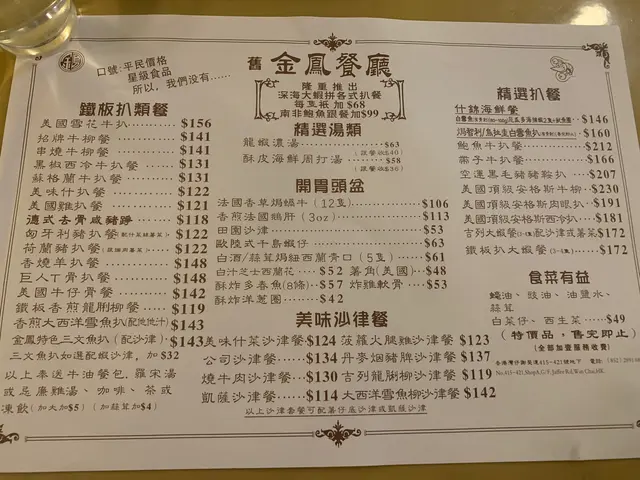 口號:平民價格
星級食品
所以，我們沒有......
舊金鳳餐廳
隆重推出
深海大蝦拼各式扒餐
每隻祇加$68
南非鮑魚跟餐加$99
鐵板扒類餐
美國雪花牛扒 $156
招牌牛柳餐 $141
串燒牛柳餐 $141
黑椒西冷牛扒餐 $131
蘇格蘭牛扒餐 $131
美味什扒餐 $122
美國雞扒餐 $121
德式去骨咸豬蹄 $118
匈牙利豬扒餐 $122
荷蘭豬扒餐 $122
香燒羊扒餐 $148
巨人T骨扒餐 $148
美國牛仔骨餐 $142
鐵板香煎龍脷柳餐 $119
香煎大西洋雪魚扒(配他他汁) $143
金鳳特色三文魚扒(配沙律) $143
三文魚扒如選配椒沙律，加$32
以上奉送牛油餐包，羅宋湯
或忌廉雞湯、咖啡、茶或
凍飲(加大加$5)(加蒜茸加$4)
精選湯類
龍蝦濃湯 $63
(跟餐收$40)
酥皮海鮮周打湯 $58
(跟餐收$36)
開胃頭盆
法國香草焗蝸牛(12隻) $106
香煎法國鵝肝(3oz) $113
田園沙律 $53
歐陸式千島蝦仔 $63
白酒/蒜茸焗紐西蘭青口(5隻) $61
白汁芝士西蘭花 $52 薯角(美國) $48
酥炸多春魚(8條) $57 炸雞軟骨 $53
酥炸洋蔥圈 $42
美味沙律餐
美味什菜沙律餐 $124 菠蘿火腿雞沙律餐 $123
公司沙律餐 $134 丹麥烟豬柳沙律餐 $137
燒牛肉沙律餐 $130 吉列龍脷柳沙律餐 $119
凱薩沙律餐 $114 大西洋雪魚柳沙律餐 $142
以上沙律套餐可配薯仔底沙律或凱薩沙律
精選扒餐
什錦海鮮餐
$146
焗智利/魚扯皮白靈魚扒 $160
鮑魚牛扒餐 $212
霸子牛扒餐 $166
空運黑毛豬豬鞍扒 $207
美國頂級安格斯牛柳 $230
美國頂級安格斯肉眼扒 $191
美國頂級安格斯西冷扒 $181
吉列大蝦餐(1-4隻)配沙律或薯菜 $172
鐵板扒大蝦餐(1-4隻) $172
食菜有益
蠔油、豉油、油鹽水、
蒜茸
白菜仔、西生菜 $49
(特價品，售完即止)
(全部加壹服務收費)
香港灣仔謝斐道415-421號地下 電話
No.415-421,ShopA,G/F,Jaffee Rd,Wan Chai,HK.